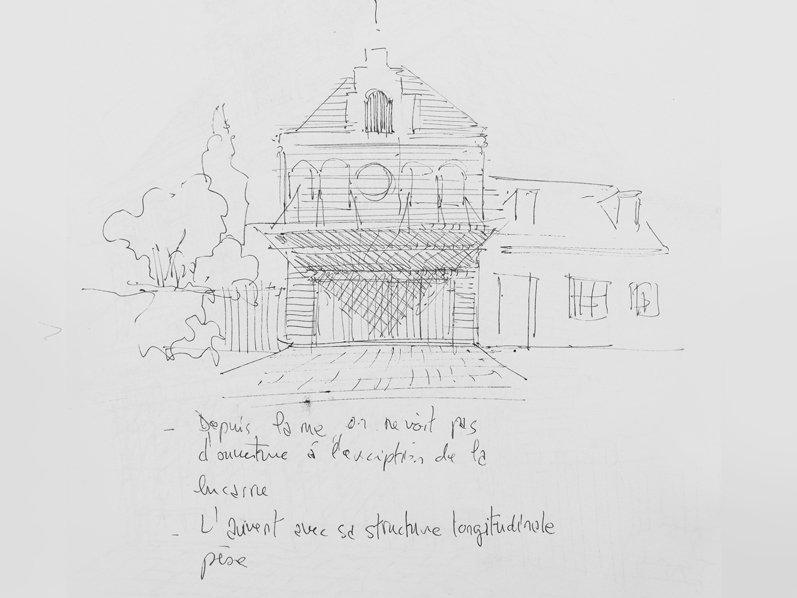 - Depuis la rue, on ne voit pas
d'ouverture à l'exception de la
lucarne
- L'auvent avec sa structure longitudinale
pèse